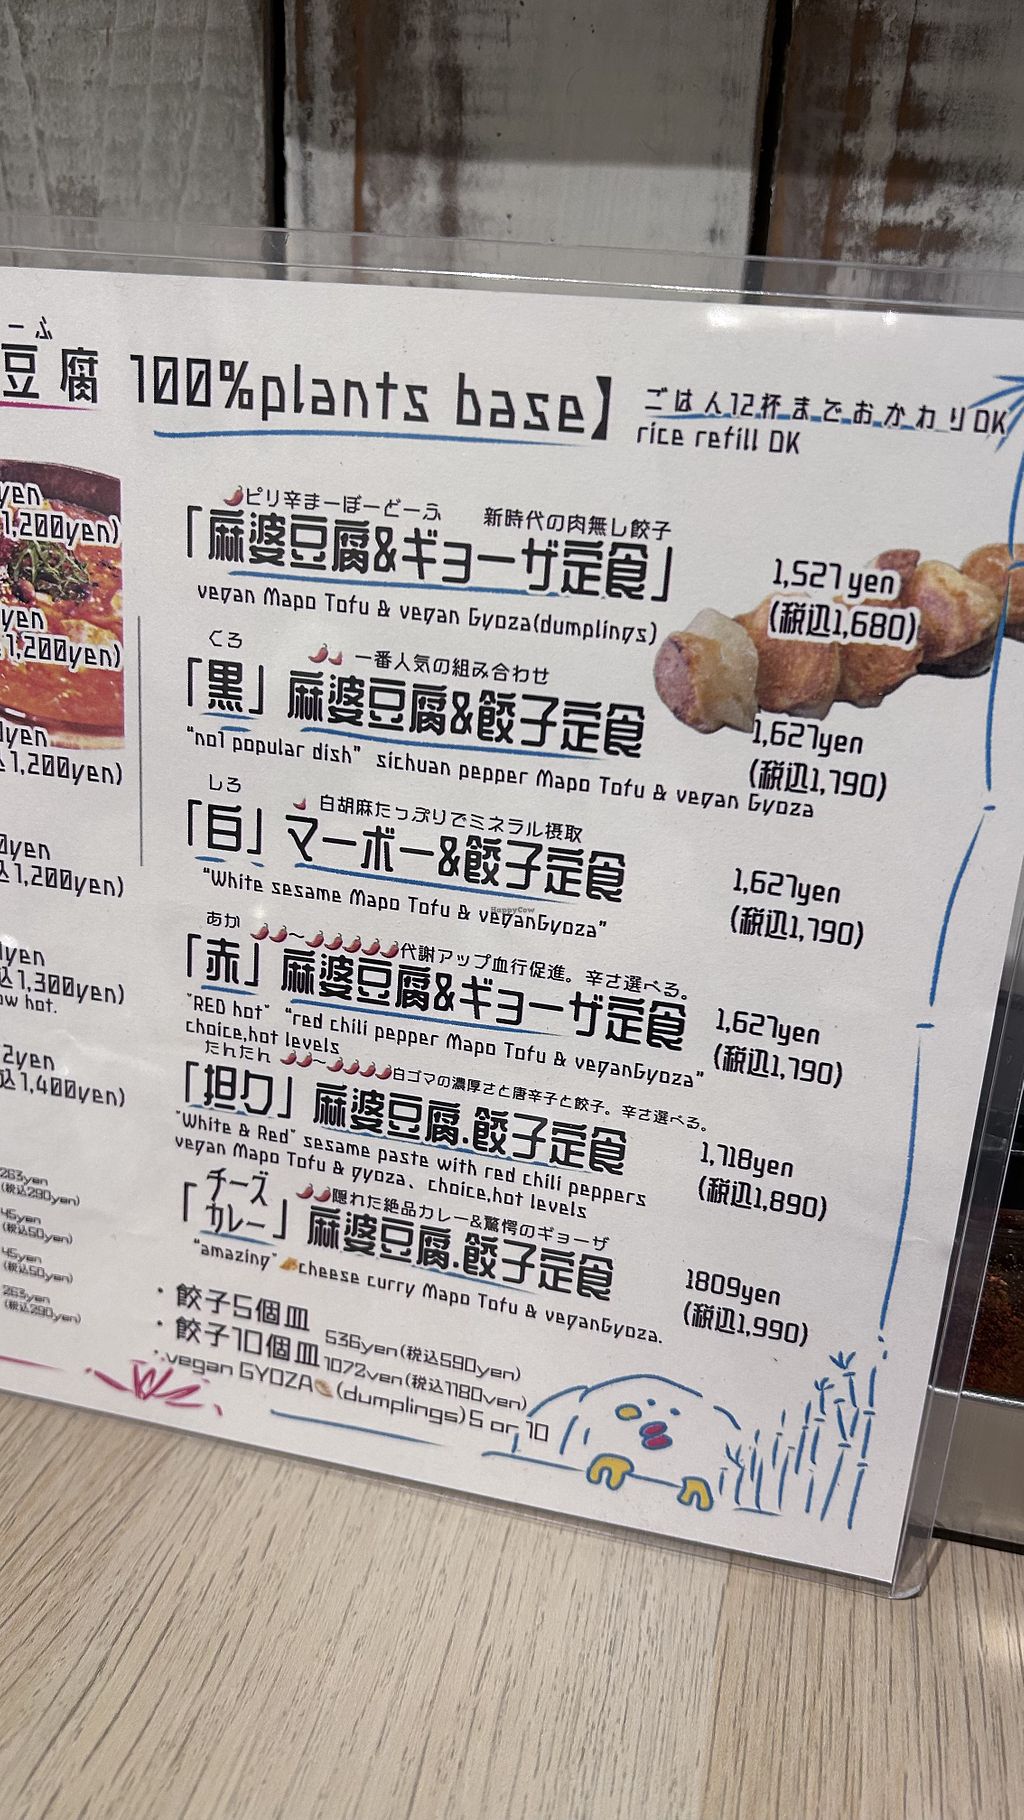 ーふ
豆腐 100%plants base】
ごはん12杯までおかわりOK
rice refill OK
yen
1,200yen)
yen
1,200yen)
yen
込1,200yen)
0yen
込1,200yen)
yen
込1,300yen)
ow hot.
2yen
込1,400yen)
263yen
(税込290yen)
45yen
(税込50yen)
45yen
(税込50yen)
263yen
(税込290yen)
ピリ辛まーぼーどーふ 新時代の肉無し餃子
「麻婆豆腐&ギョーザ定食」
vegan Mapo Tofu & vegan Gyoza(dumplings)
1,527yen
(税込1,680)
くろ 一番人気の組み合わせ
「黒」 麻婆豆腐&餃子定食
"no1 popular dish" sichuan pepper Mapo Tofu & vegan Gyoza
1,627yen
(税込1,790)
しろ 白胡麻たっぷりでミネラル摂取
「白」 マーボー&餃子定食
"White sesame Mapo Tofu & veganGyoza"
1,627yen
(税込1,790)
HappyCow
あか 〜 代謝アップ血行促進。辛さ選べる。
「赤」 麻婆豆腐&ギョーザ定食
"RED hot" "red chili pepper Mapo Tofu & veganGyoza"
choice,hot levels
1,627yen
(税込1,790)
たんたん 〜 白ゴマの濃厚さと唐辛子と餃子。辛さ選べる。
「担々」 麻婆豆腐.餃子定食
"White & Red" sesame paste with red chili peppers
vegan Mapo Tofu & gyoza、choice,hot levels
1,718yen
(税込1,890)
隠れた絶品カレー&驚愕のギョーザ
「チーズカレー」 麻婆豆腐.餃子定食
"amazing" cheese curry Mapo Tofu & veganGyoza.
1809yen
(税込1,990)
・餃子5個皿 536yen(税込590yen)
・餃子10個皿 1072yen(税込1180yen)
・vegan GYOZA (dumplings) 5 or 10